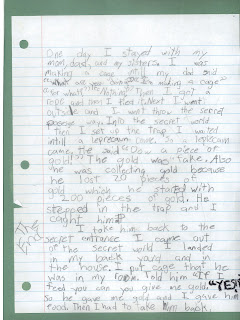 One day I stayed with my
mom, dad, and my sisters. I was
making a cage until my dad said
"what are you doing? I'm making a cage"
for what? "Nothing" Then I got a
rope and then I tied it. Next I went
outside and I went throw the secret
passage way. Into the secret world
Then I set up the trap. I waited
intill a leprecaun came. A leprecaun
came. He said "Ooo a piece of
gold." The gold was fake. Also
he was collecting gold because
he lost 20 pieces of
gold which he started with
200 pieces of gold. He
stepped in the trap and I
caught him
I take him back to the
secret entrance I came out
of the secret world I landed
in my back yard and in
the house. I put cage that he
was in my room. I told him "If I
feed you can you give me gold. "YES!"
So he gave me gold and I gave him
food. Then I had to take him back.